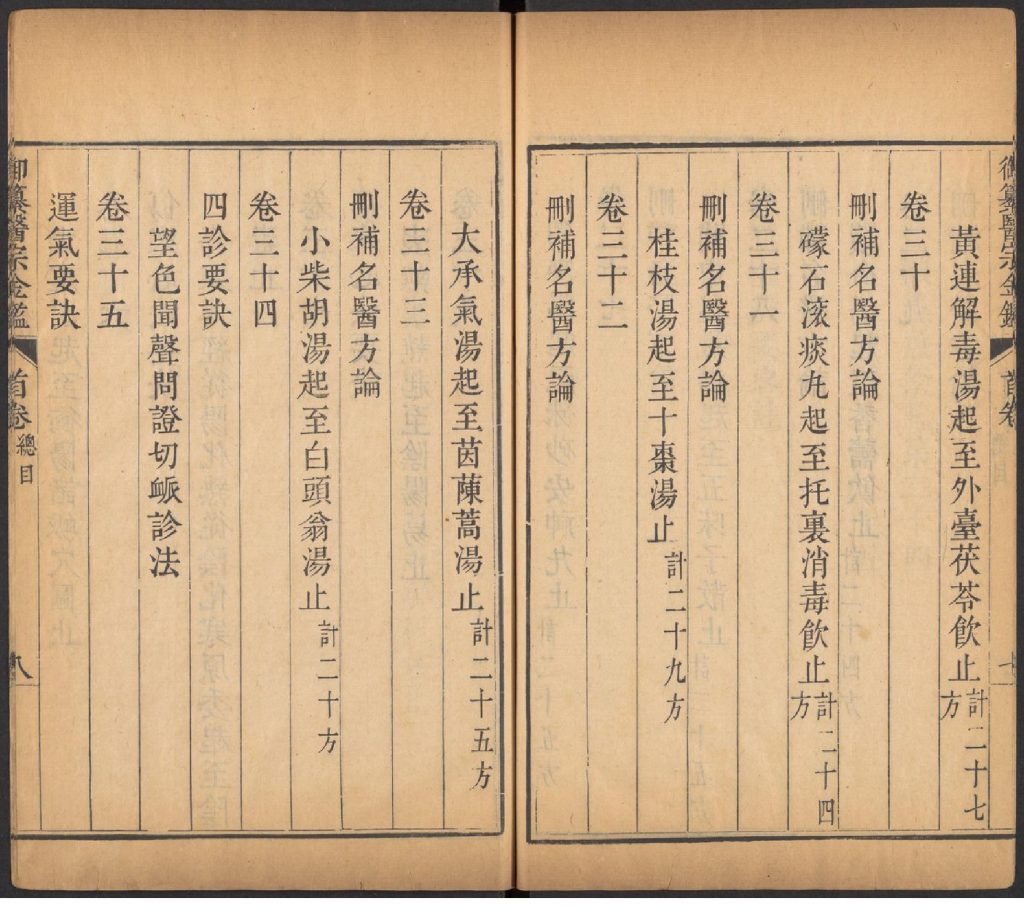 黃連解毒湯起至外臺茯苓飲止計二十七方
卷三十
刪補名醫方論
礞石滚痰丸起至托裏消毒飲止計二十四方
卷三十一
刪補名醫方論
桂枝湯起至十棗湯止計二十九方
卷三十二
刪補名醫方論
大承氣湯起至茵蔯蒿湯止計二十五方
卷三十三
刪補名醫方論
小柴胡湯起至白頭翁湯止計二十方
卷三十四
四診要訣
望色聞聲問證切衇診法
卷三十五
運氣要訣
御纂醫宗金鑑
首卷
總目
八